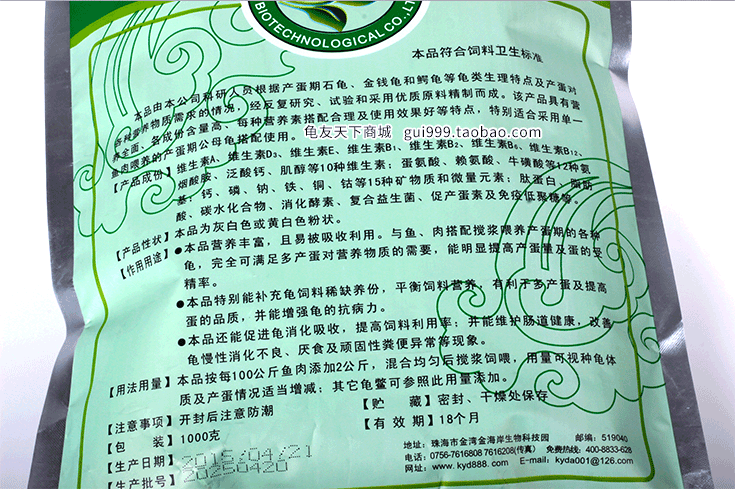 BIOTECHNOLOGICAL CO.,LT
本品符合饲料卫生标准
本品由本公司科研人员根据产蛋期石龟、金钱龟和鳄龟等龟类生理特点及产蛋对
各种营养物质需求的情况，经反复研究、试验和采用优质原料精制而成。该产品具有营
养全面、各成份含量高、每种营养素搭配合理及使用效果好等特点，特别适合采用单一
鱼肉喂养的产蛋期公母龟搭配使用。
龟友天下商城 gui999.taobao.com
【产品成份】维生素A、维生素D₃、维生素E、维生素B₁、维生素B₂、维生素B₆、维生素B₁₂、
烟酸胺、泛酸钙、肌醇等10种维生素；蛋氨酸、赖氨酸、牛磺酸等12种氨
基；钙、磷、钠、铁、铜、钴等15种矿物质和微量元素；肽蛋白、脂肪
酸、碳水化合物、消化酵素、复合益生菌、促产蛋素及免疫低聚糖等。
【产品性状】本品为灰白色或黄白色粉状。
【作用用途】●本品营养丰富，且易被吸收利用。与鱼、肉搭配搅浆喂养产蛋期的各种
龟，完全可满足多产蛋对营养物质的需要，能明显提高产蛋量及蛋的受
精率。
●本品特别能补充龟饲料稀缺养份，平衡饲料营养，有利于多产蛋及提高
蛋的品质，并能增强龟的抗病力。
●本品还能促进龟消化吸收，提高饲料利用率；并能维护肠道健康，改善
龟慢性消化不良、厌食及顽固性粪便异常等现象。
【用法用量】本品按每100公斤鱼肉添加2公斤，混合均匀后搅浆饲喂，用量可视种龟体
质及产蛋情况适当增减；其它龟鳖可参照此用量添加。
【注意事项】开封后注意防潮
【贮 藏】密封、干燥处保存
【包 装】1000克
【有 效 期】18个月
【生产日期】2015/04/21
【生产批号】20250420
地址：珠海市金湾金海岸生物科技园 邮编：519040
电话：0756-7616808 7616208(传真) 免费热线：400-8833-628
网址：www.kyd888.com E-mail：kyda001@126.com